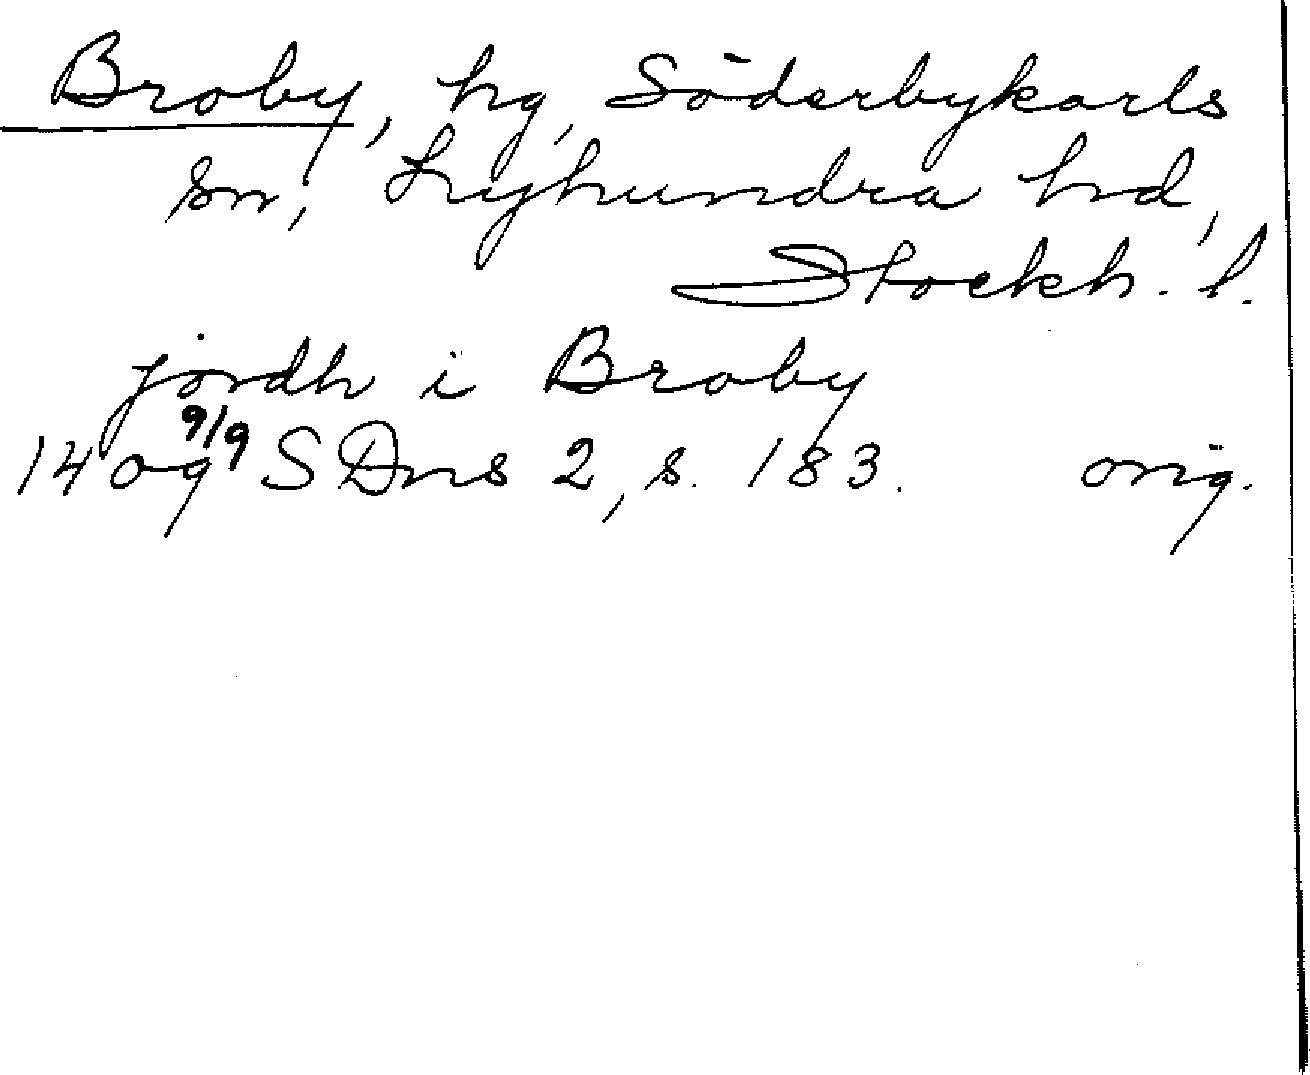 Broby, hg, Söderbykarls
sn, Lyhundra hd,
Stockh. l.
jordh i Broby
1409 9/9 SDns 2, s. 183. orig.